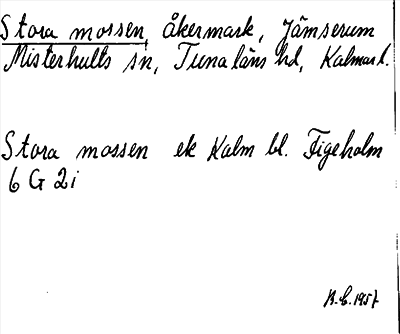 Stora mossen, åkermark, Jämserum
Misterhults sn, Tunaläns hd, Kalmar l.
Stora mossen ek Kalm bl. Figeholm
6 G 2i
1957